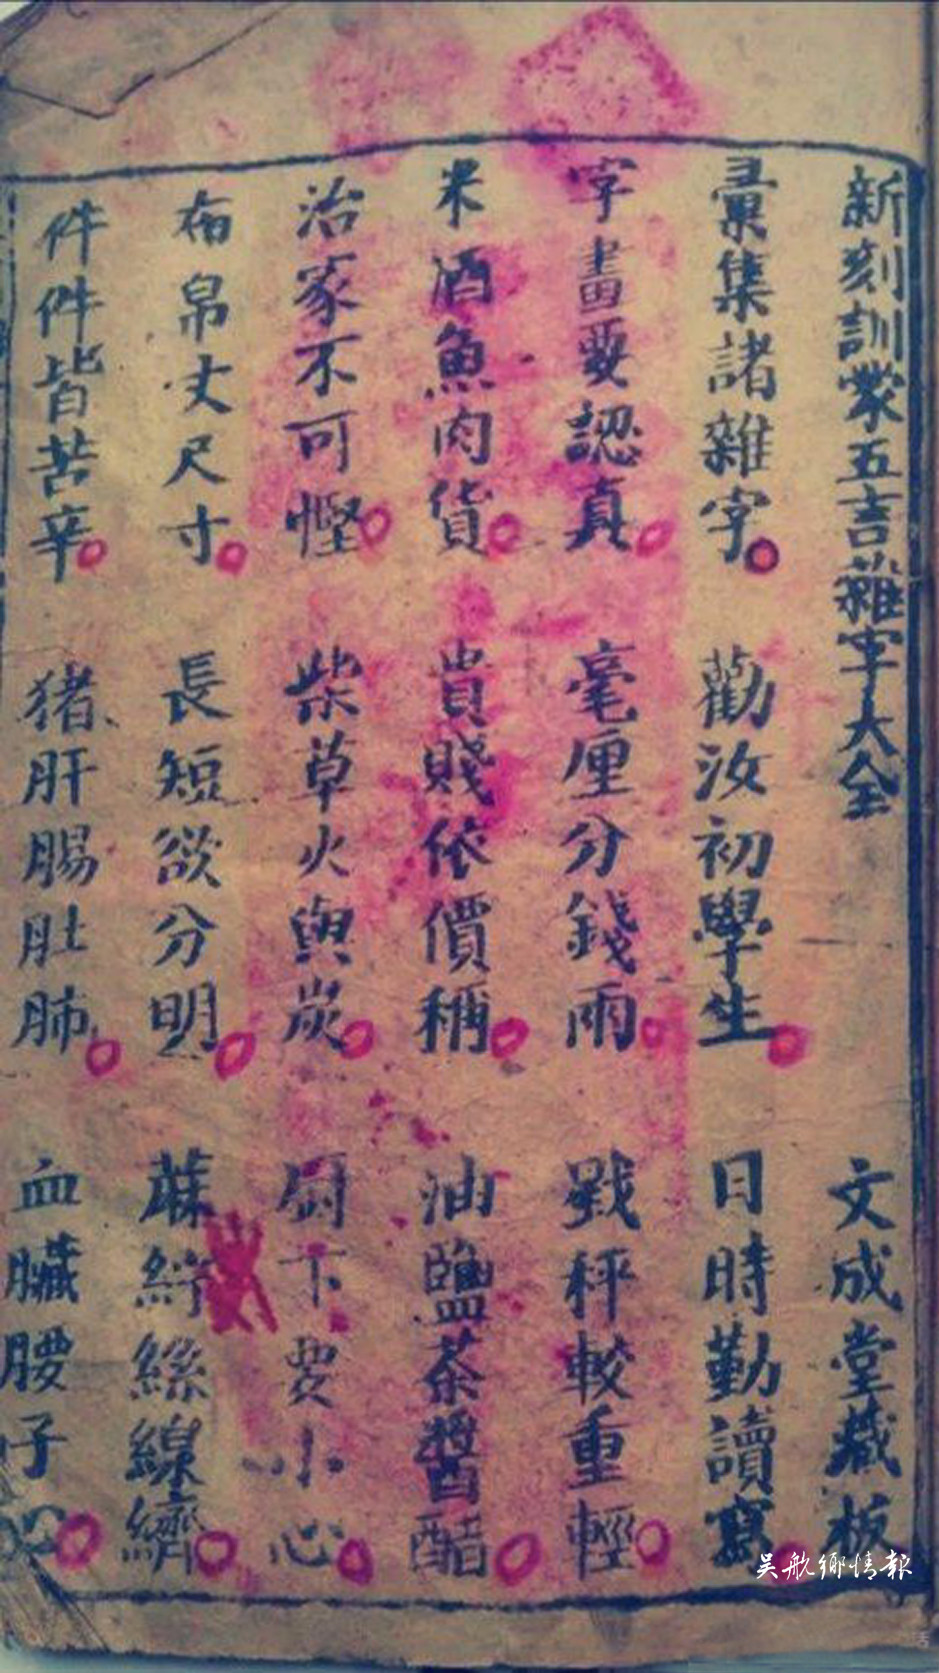 新刻訓蒙五言雜字大全 文成堂藏板
彙集諸雜字 勸汝初學生 日時勤讀寫
字畫要認真 毫厘分錢兩 戥秤較重輕
米酒魚肉貨 貴賤依價稱 油鹽茶醬醋
治家不可慳 柴草火與炭 厨下要小心
布帛丈尺寸 長短欲分明 蔴紵絲線
件件皆苦辛 猪肝腸肚肺 血臟腰子
吴航鄉情報